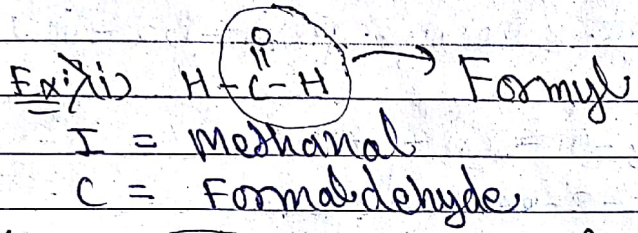 O
||
Ex:> i) H-C-H → Formyl
I = Methanal
C = Formaldehyde